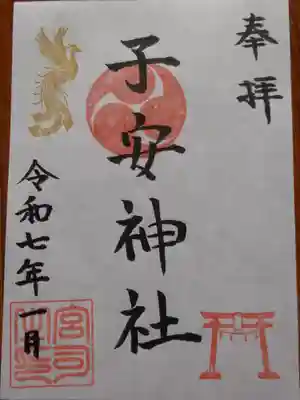 奉拝
子安神社
令和七年一月
宮司